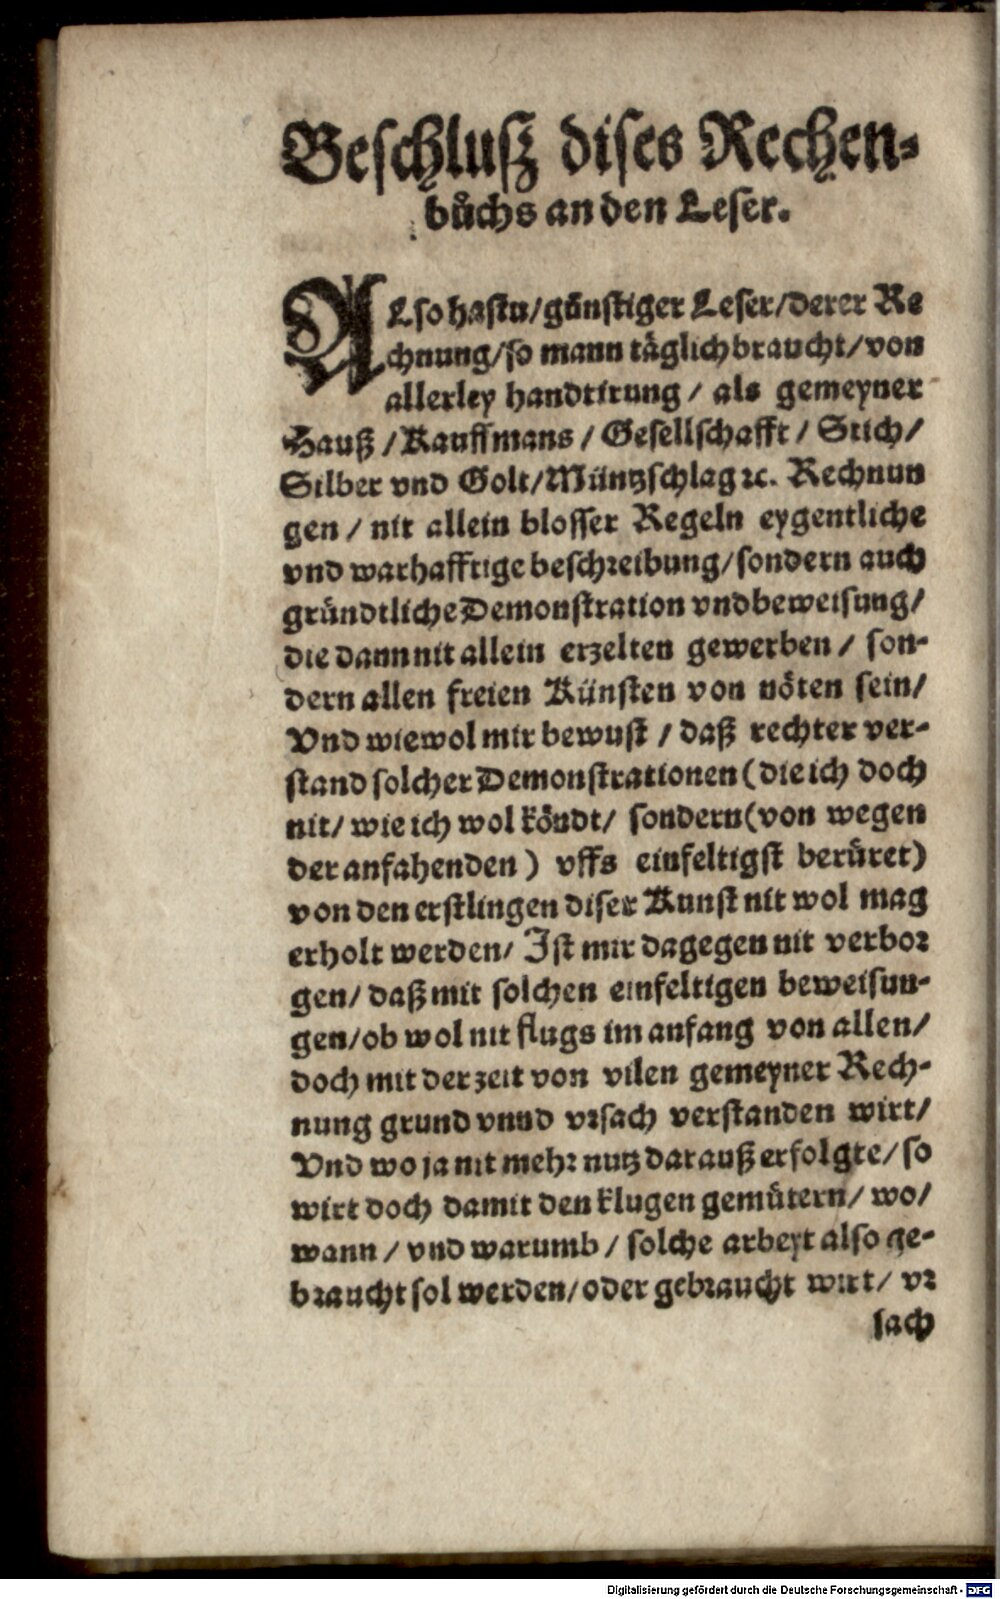 Beschluſz diſes Rechen-
bůchs an den Leser.
ALſo haſtu/günſtiger Leſer/derer Re
chnung/ſo mann täglich braucht/von
allerley handtirung / als gemeyner
Hauß / Kauffmans / Geſellſchafft / Stich /
Silber vnd Golt/Müntzſchlag ꝛc. Rechnun
gen / nit allein bloſſer Regeln eygentliche
vnd warhafftige beſchꝛeibung/ſondern auch
gründtliche Demonſtration vnd beweiſung/
die dann nit allein erzelten gewerben / ſon-
dern allen freien Künſten von nöten ſein/
Vnd wiewol mir bewuſt / daß rechter ver-
ſtand ſolcher Demonſtrationen (die ich doch
nit/ wie ich wol köndt/ ſondern(von wegen
der anfahenden) vffs einfeltigſt berüret)
von den erſtlingen diſer Kunſt nit wol mag
erholt werden/ Iſt mir dagegen nit verboꝛ
gen/ daß mit ſolchen einfeltigen beweiſun-
gen/ob wol nit flugs im anfang von allen/
doch mit der zeit von vilen gemeyner Rech-
nung grund vnnd vꝛſach verſtanden wirt/
Vnd wo ja nit mehꝛ nutz darauß erfolgte/ſo
wirt doch damit den klugen gemütern/ wo/
wann / vnd warumb / ſolche arbeyt alſo ge-
bꝛaucht ſol werden/oder gebꝛaucht wirt/ vꝛ
ſach
Digitalisierung gefördert durch die Deutsche Forschungsgemeinschaft - DFG